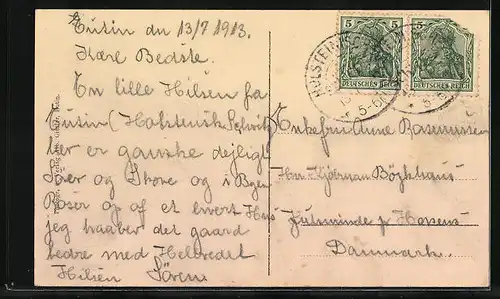 Eutin den 13/7 1913.
Kære Bedste.
En lille Hilsen fra
Eutin (Holstensk Schweitz
her er ganske dejligt
Søer og Skove og i Byen
Roser op af et hvert Hus
jeg haaber det gaard
bedre med Helbredet
Hilsen Sören
5 5
DEUTSCHES REICH
5
DEUTSCHES REICH
HOLSTEIN
5-6
5-6
Enkefru Anne Rasmussen
Juelsminde pr Horsens
Danmark.